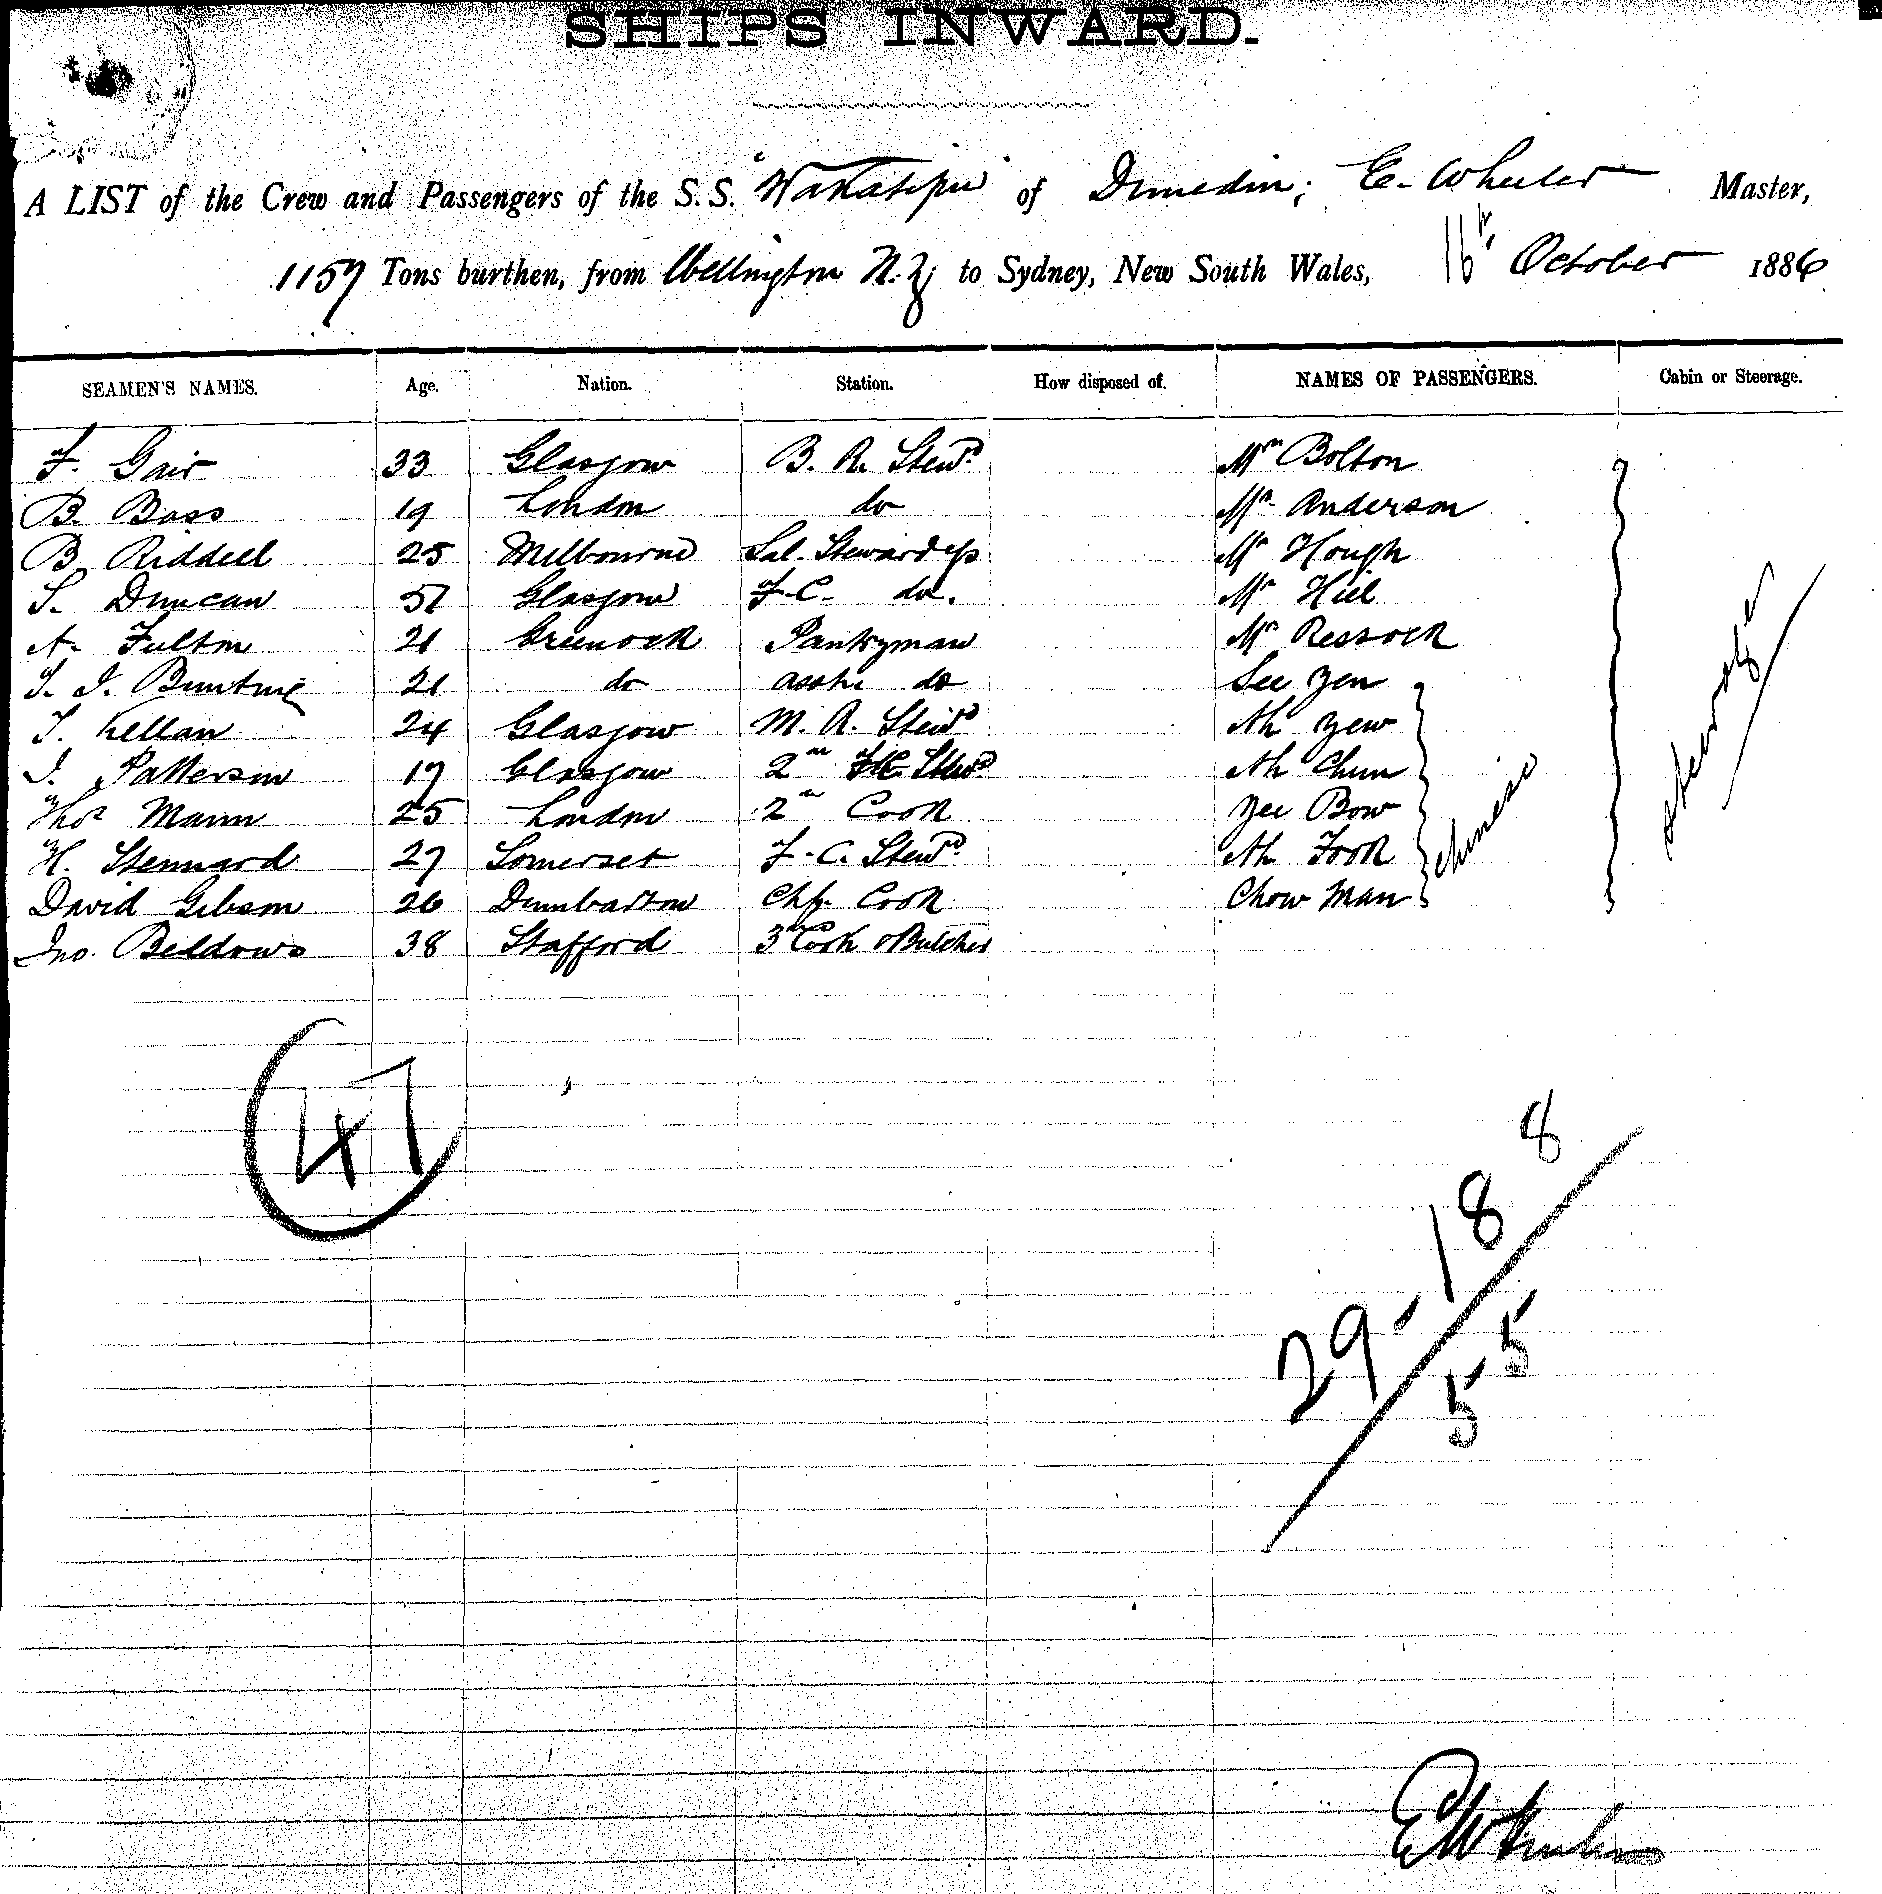 SHIPS INWARD.
A LIST of the Crew and Passengers of the S.S. "Wakatipu" of Dunedin; E. Wheeler Master,
1157 Tons burthen, from Wellington N.Z; to Sydney, New South Wales, 16th October 1886
SEAMEN'S NAMES. Age. Nation. Station. How disposed of. NAMES OF PASSENGERS. Cabin or Steerage.
F. Gair 33 Glasgow B. R. Stewd Mr Bolton
B. Bass 19 London do Mr Anderson
B. Riddell 25 Melbourne Sal. Steward Mr Hough
S. Duncan Glasgow F.C. do. Mr Hill
A. Fulton 21 Greenock Pantryman Mr
21 do asst. do See Yen
24 Glasgow M. R. Stewd Ah Yew
J. Patterson 17 Glasgow 2nd Stewd Ah Chun
Thos Mann 25 London 2nd Cook Yee Bow
H. Stennard 27 Somerset F.C. Stewd Ah Fook
David Gibson 26 Dumbarton Chf. Cook Chow Man
Jno. Beddows 38 Stafford 3rd Cook & Butcher
Chinese
Steerage
47
29. 18 8
55